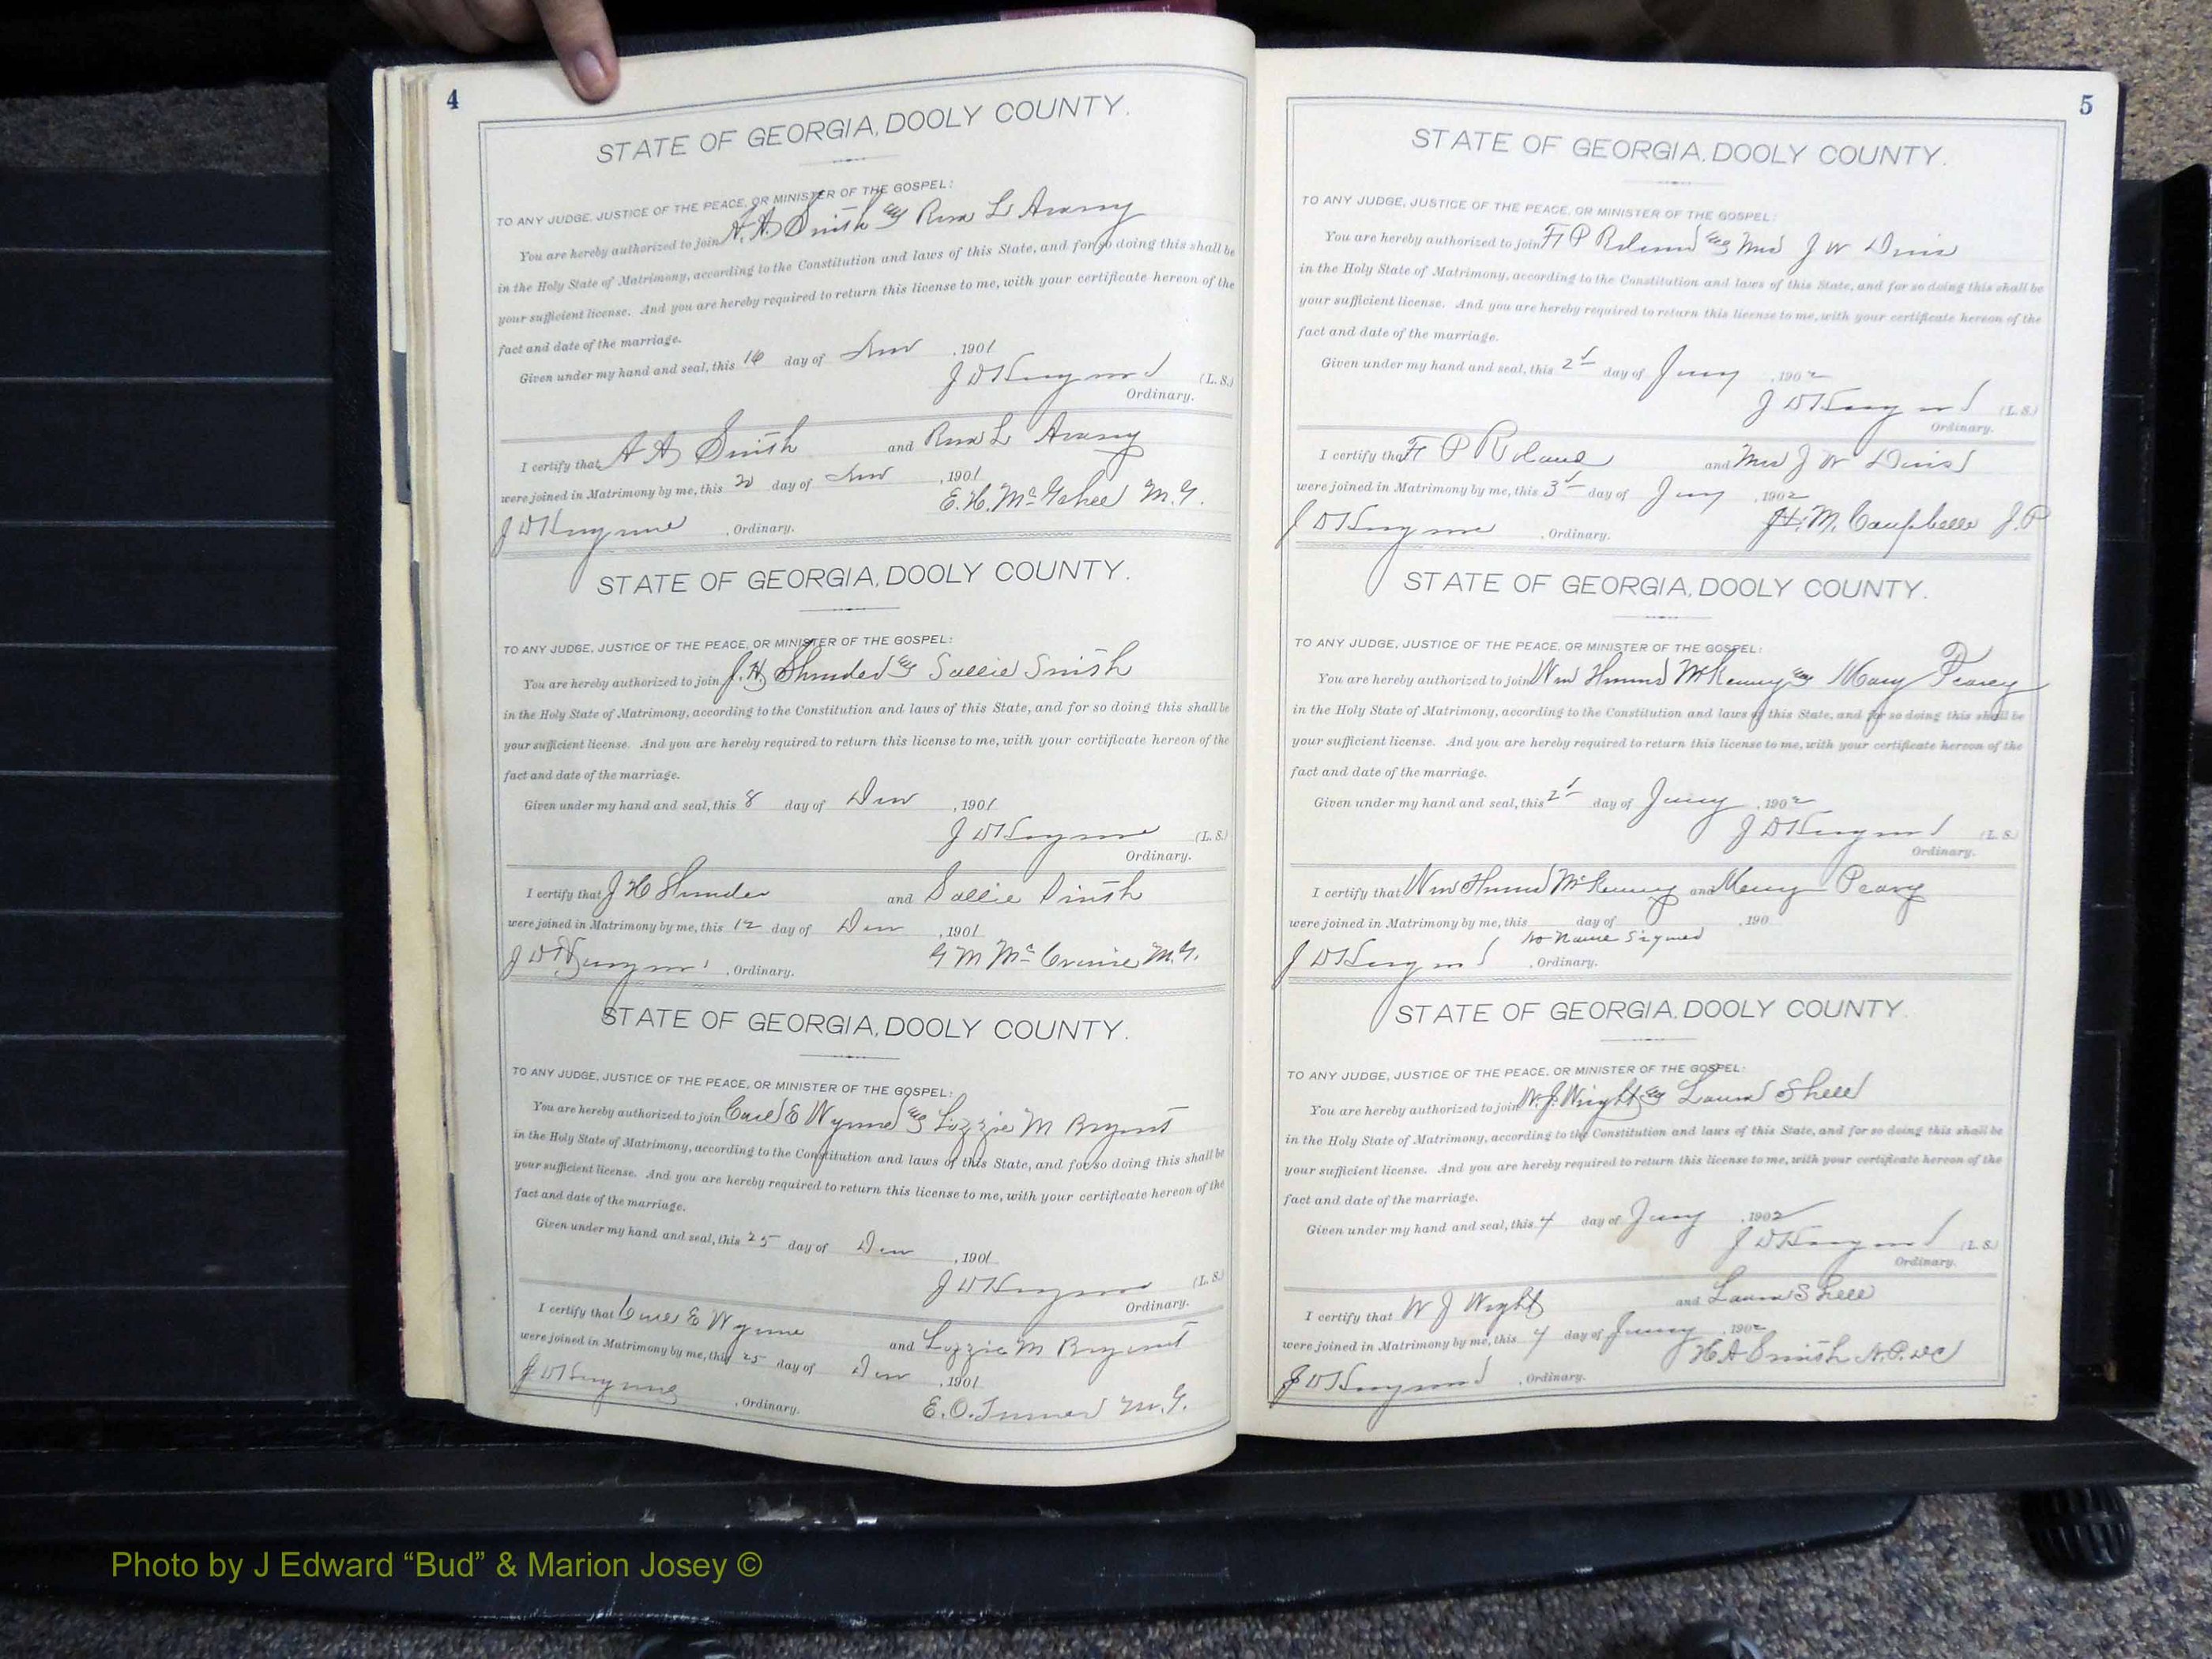 4
STATE OF GEORGIA, DOOLY COUNTY.
TO ANY JUDGE, JUSTICE OF THE PEACE, OR MINISTER OF THE GOSPEL:
You are hereby authorized to join A. A. Smith & L
in the Holy State of Matrimony, according to the Constitution and laws of this State, and for so doing this shall be
your sufficient license. And you are hereby required to return this license to me, with your certificate hereon of the
fact and date of the marriage.
Given under my hand and seal, this 16 day of , 1901
J D (L. S.)
Ordinary.
I certify that A A Smith and L
were joined in Matrimony by me, this 20 day of , 1901
E. H. McGehee M. G.
J D , Ordinary.
STATE OF GEORGIA, DOOLY COUNTY.
TO ANY JUDGE, JUSTICE OF THE PEACE, OR MINISTER OF THE GOSPEL:
You are hereby authorized to join J. H. & Sallie Smith
in the Holy State of Matrimony, according to the Constitution and laws of this State, and for so doing this shall be
your sufficient license. And you are hereby required to return this license to me, with your certificate hereon of the
fact and date of the marriage.
Given under my hand and seal, this 8 day of , 1901
J D (L. S.)
Ordinary.
I certify that J H and Sallie Smith
were joined in Matrimony by me, this 12 day of , 1901
G M M. G.
J D , Ordinary.
STATE OF GEORGIA, DOOLY COUNTY.
TO ANY JUDGE, JUSTICE OF THE PEACE, OR MINISTER OF THE GOSPEL:
You are hereby authorized to join E Wynne & Lizzie M Bryant
in the Holy State of Matrimony, according to the Constitution and laws of this State, and for so doing this shall be
your sufficient license. And you are hereby required to return this license to me, with your certificate hereon of the
fact and date of the marriage.
Given under my hand and seal, this 25 day of , 1901
J D (L. S.)
Ordinary.
I certify that E Wynne and Lizzie M Bryant
were joined in Matrimony by me, this 25 day of , 1901
E. O. Turner M. G.
J D , Ordinary.
5
STATE OF GEORGIA, DOOLY COUNTY.
TO ANY JUDGE, JUSTICE OF THE PEACE, OR MINISTER OF THE GOSPEL:
You are hereby authorized to join F P Roland & Mrs J W
in the Holy State of Matrimony, according to the Constitution and laws of this State, and for so doing this shall be
your sufficient license. And you are hereby required to return this license to me, with your certificate hereon of the
fact and date of the marriage.
Given under my hand and seal, this 2d day of Jany , 1902
J D (L. S.)
Ordinary.
I certify that F P Roland and Mrs J W
were joined in Matrimony by me, this 3d day of Jany , 1902
H. M. Campbell J. P
J D , Ordinary.
STATE OF GEORGIA, DOOLY COUNTY.
TO ANY JUDGE, JUSTICE OF THE PEACE, OR MINISTER OF THE GOSPEL:
You are hereby authorized to join Wm McKenny & Mary Peavy
in the Holy State of Matrimony, according to the Constitution and laws of this State, and for so doing this shall be
your sufficient license. And you are hereby required to return this license to me, with your certificate hereon of the
fact and date of the marriage.
Given under my hand and seal, this 2d day of Jany , 1902
J D (L. S.)
Ordinary.
I certify that Wm McKenny and Mary Peavy
were joined in Matrimony by me, this day of , 190
No Name Signed
J D , Ordinary.
STATE OF GEORGIA, DOOLY COUNTY.
TO ANY JUDGE, JUSTICE OF THE PEACE, OR MINISTER OF THE GOSPEL:
You are hereby authorized to join W. J. Wright & Laura Shell
in the Holy State of Matrimony, according to the Constitution and laws of this State, and for so doing this shall be
your sufficient license. And you are hereby required to return this license to me, with your certificate hereon of the
fact and date of the marriage.
Given under my hand and seal, this 4 day of Jany , 1902
J D (L. S.)
Ordinary.
I certify that W J Wright and Laura Shell
were joined in Matrimony by me, this 4 day of Jany , 1902
H A Smith N. P. DC
J D , Ordinary.
Photo by J Edward “Bud” & Marion Josey ©